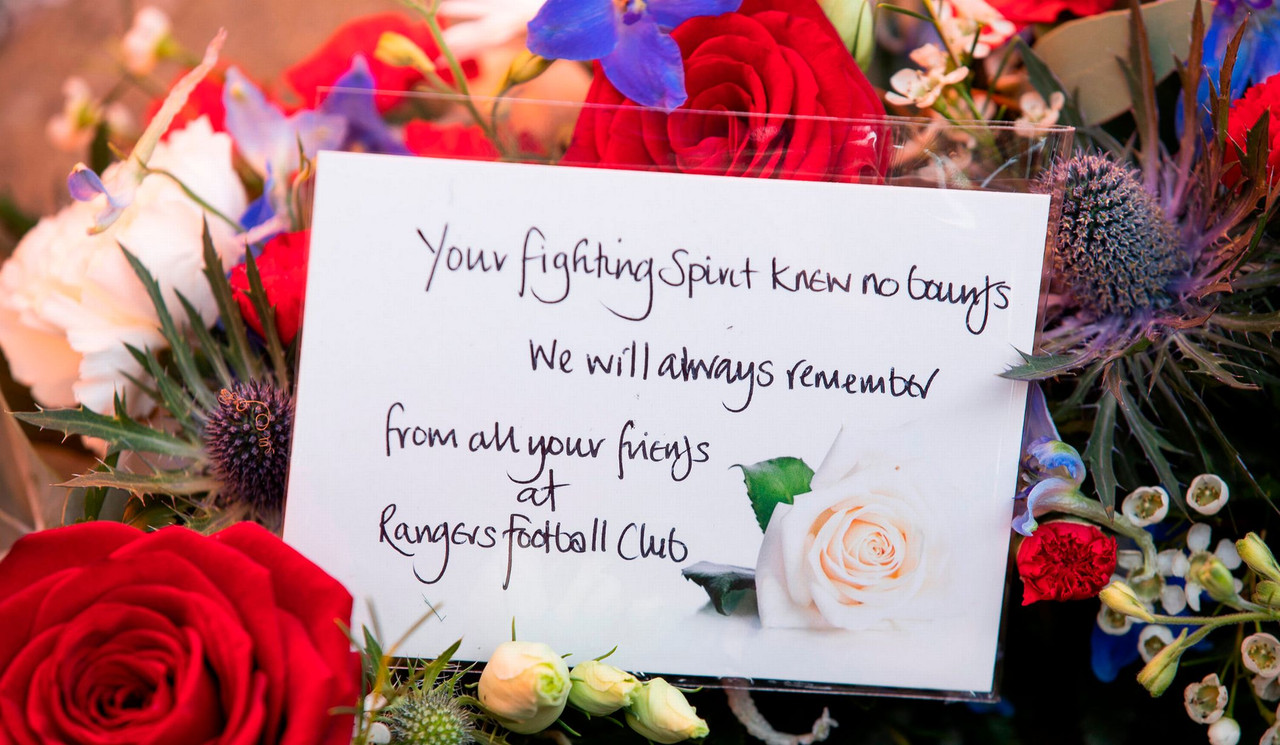 Your fighting Spirit knew no bounds
We will always remember
from all your friends
at
Rangers football Club